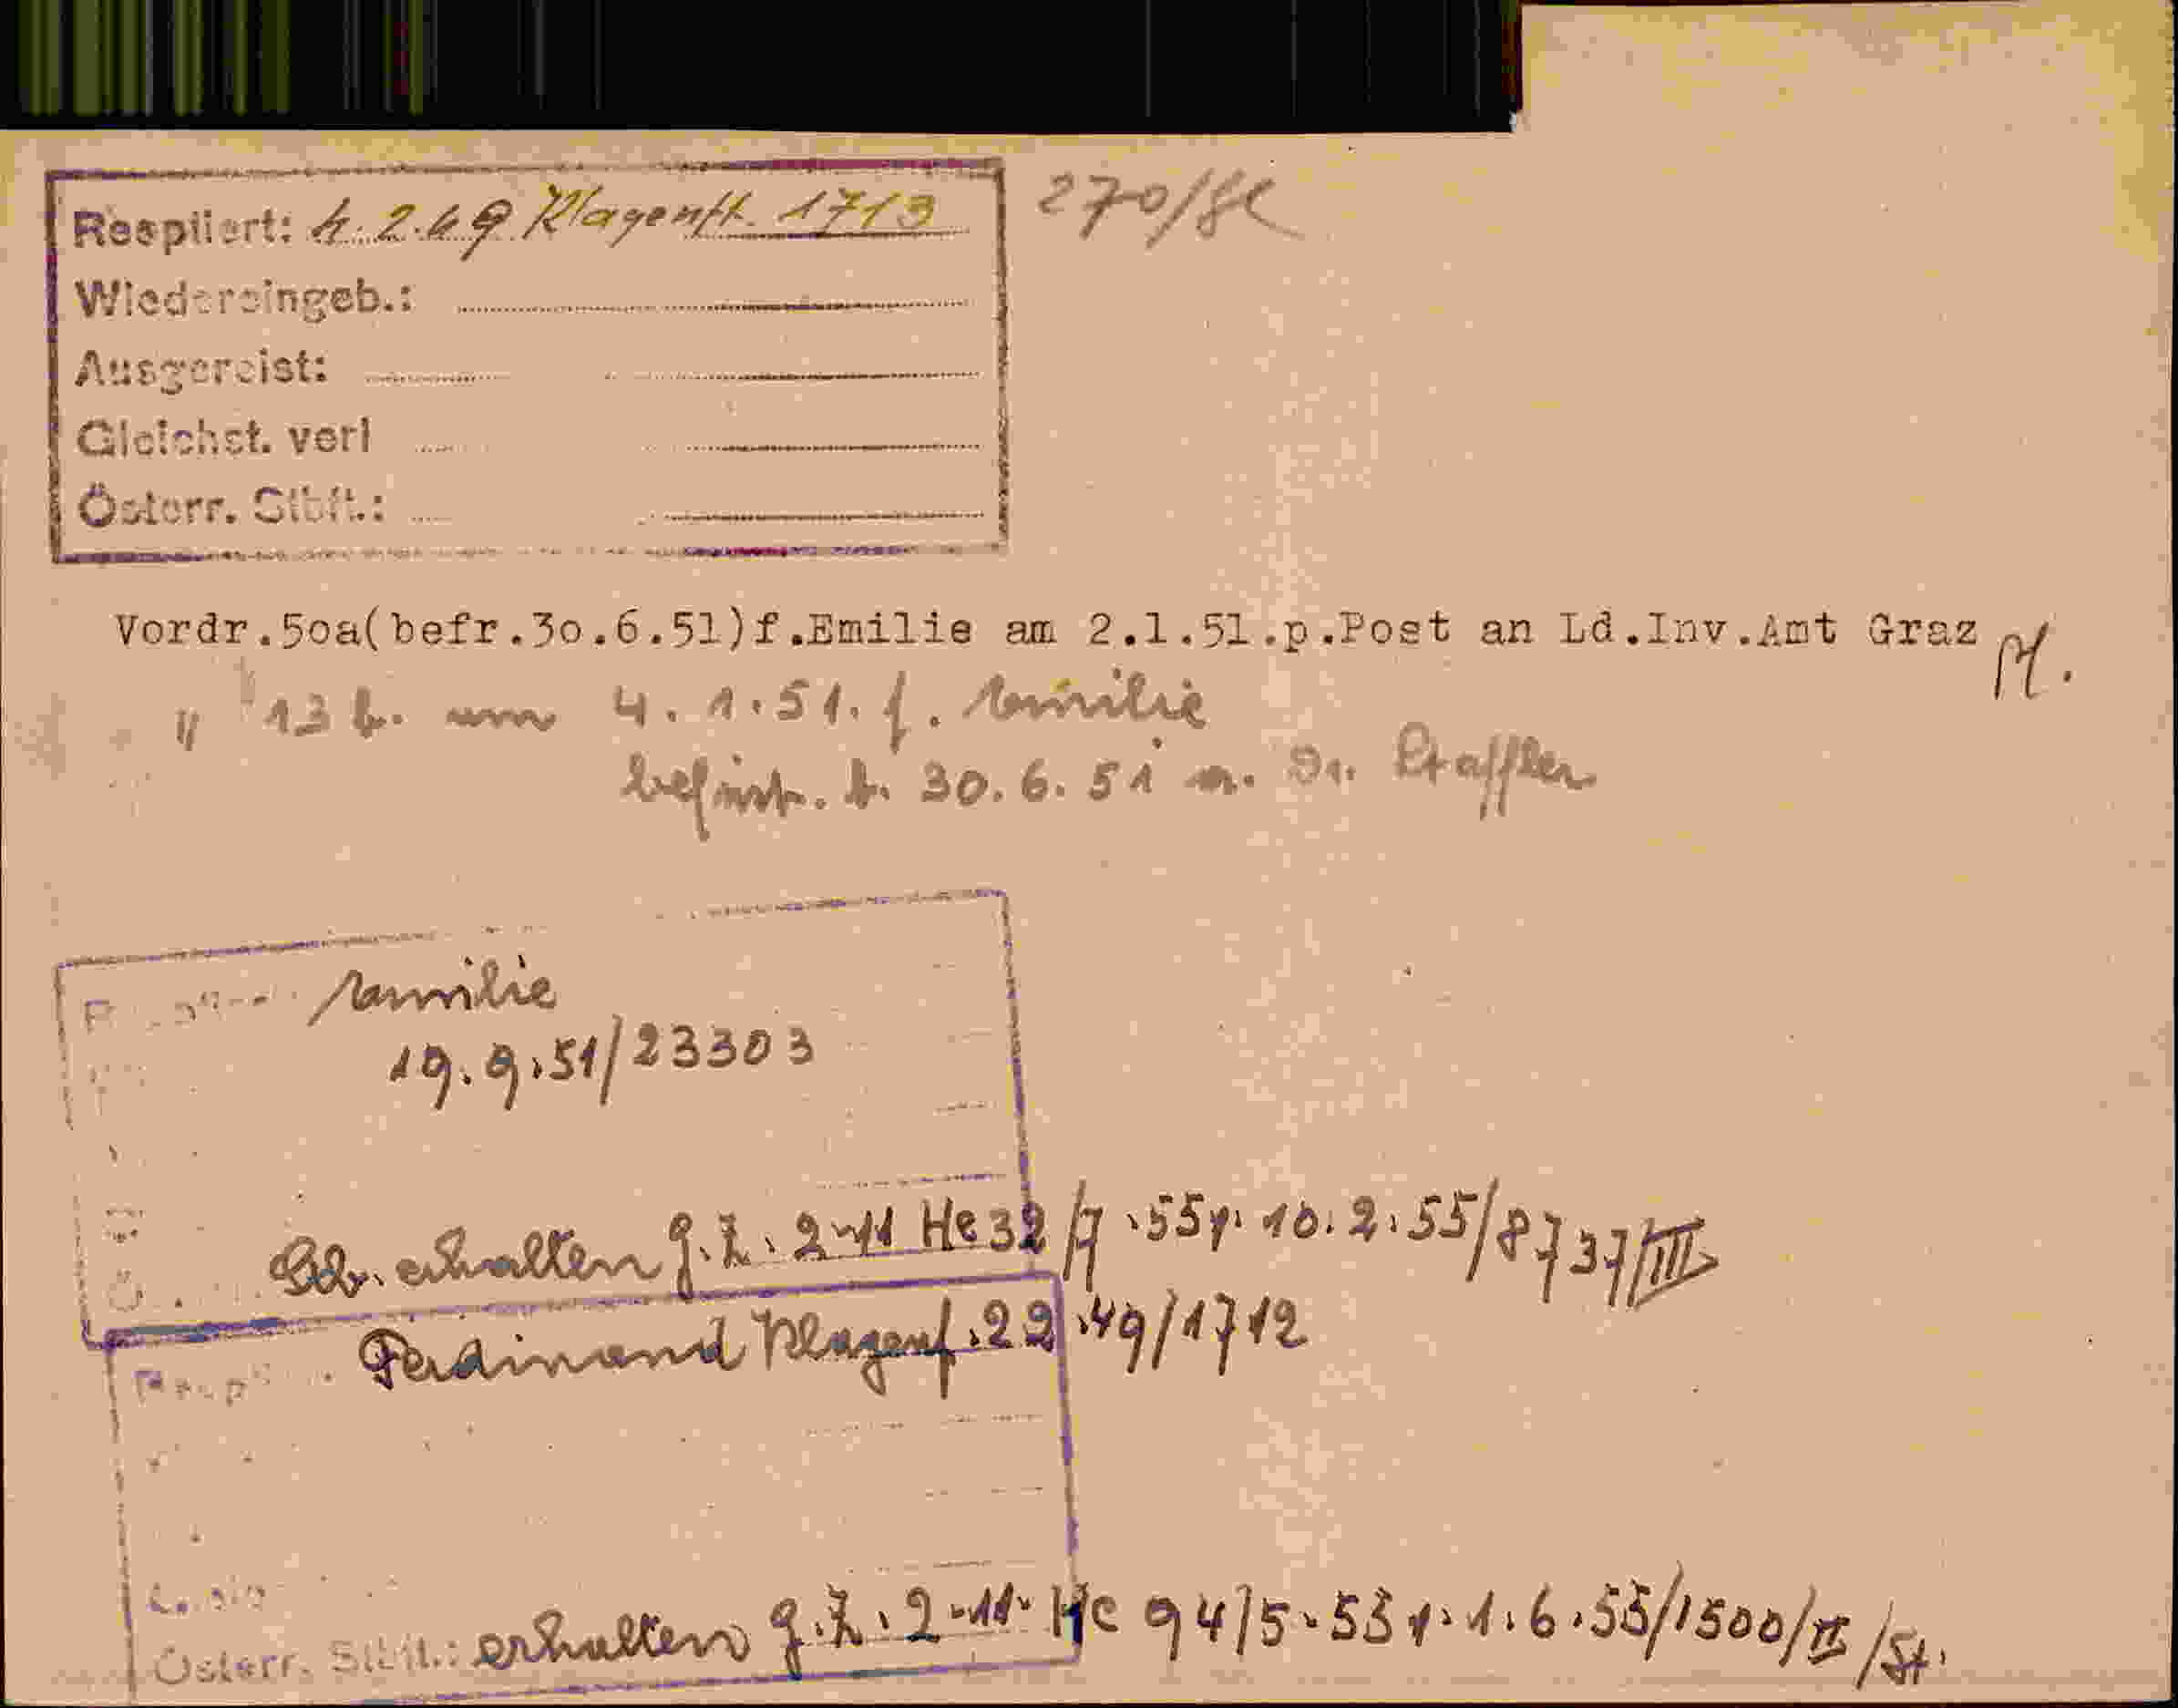 Respiiert: 4.2.49 Klagenft. 1713
270/
Wiedereingeb.:
Ausgereist:
Gleichst. verl
Österr. Stbft.:
Vordr.5oa(befr.3o.6.51)f.Emilie am 2.1.51.p.Post an Ld.Inv.Amt Graz
" 13 b. am 4.1.51. f. Emilie
befrist. b. 30.6.51 Dr. Staffler
Emilie
19.9.51/23303
erhalten g.Z. 2-11 He 32/7.55 v. 10.2.55/8737/III
Ferdinand Klagenf. 2 2.49/1712
Österr. Stbft.: erhalten g.Z. 2-11- He 94/5-55 v. 1.6.55/1500/II/St.